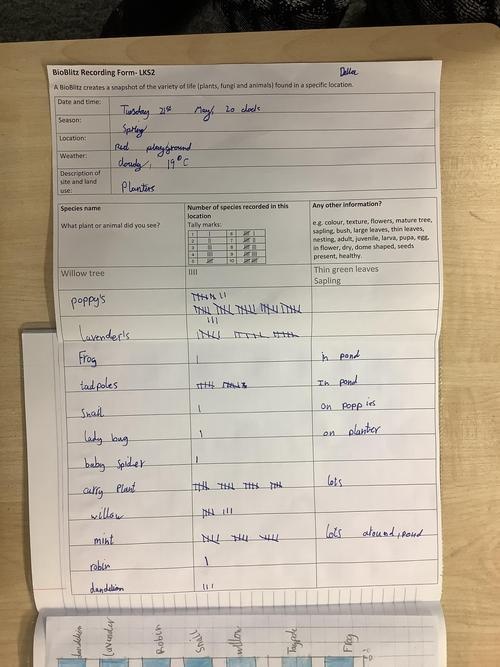 BioBlitz Recording Form- LKS2
A BioBlitz creates a snapshot of the variety of life (plants, fungi and animals) found in a specific location.
Date and time: Tuesday 21st May, 20 clock
Season: Spring
Location: Red playground
Weather: cloudy, 19°C
Description of site and land use: Planters
Species name
What plant or animal did you see?
Number of species recorded in this location
Tally marks:
1 6
2 7
3 8
4 9
5 10
Any other information?
e.g. colour, texture, flowers, mature tree, sapling, bush, large leaves, thin leaves, nesting, adult, juvenile, larva, pupa, egg, in flower, dry, dome shaped, seeds present, healthy.
Willow tree IIII Thin green leaves
Sapling
poppy's
lavender's
Frog In pond
tadpoles In pond
Snail on poppies
lady bug on planter
baby spider
curry plant lots
willow
mint lots around pond
robin
dandelion
dandelion
lavender
Robin
Snail
willow
Tadpole
Frog